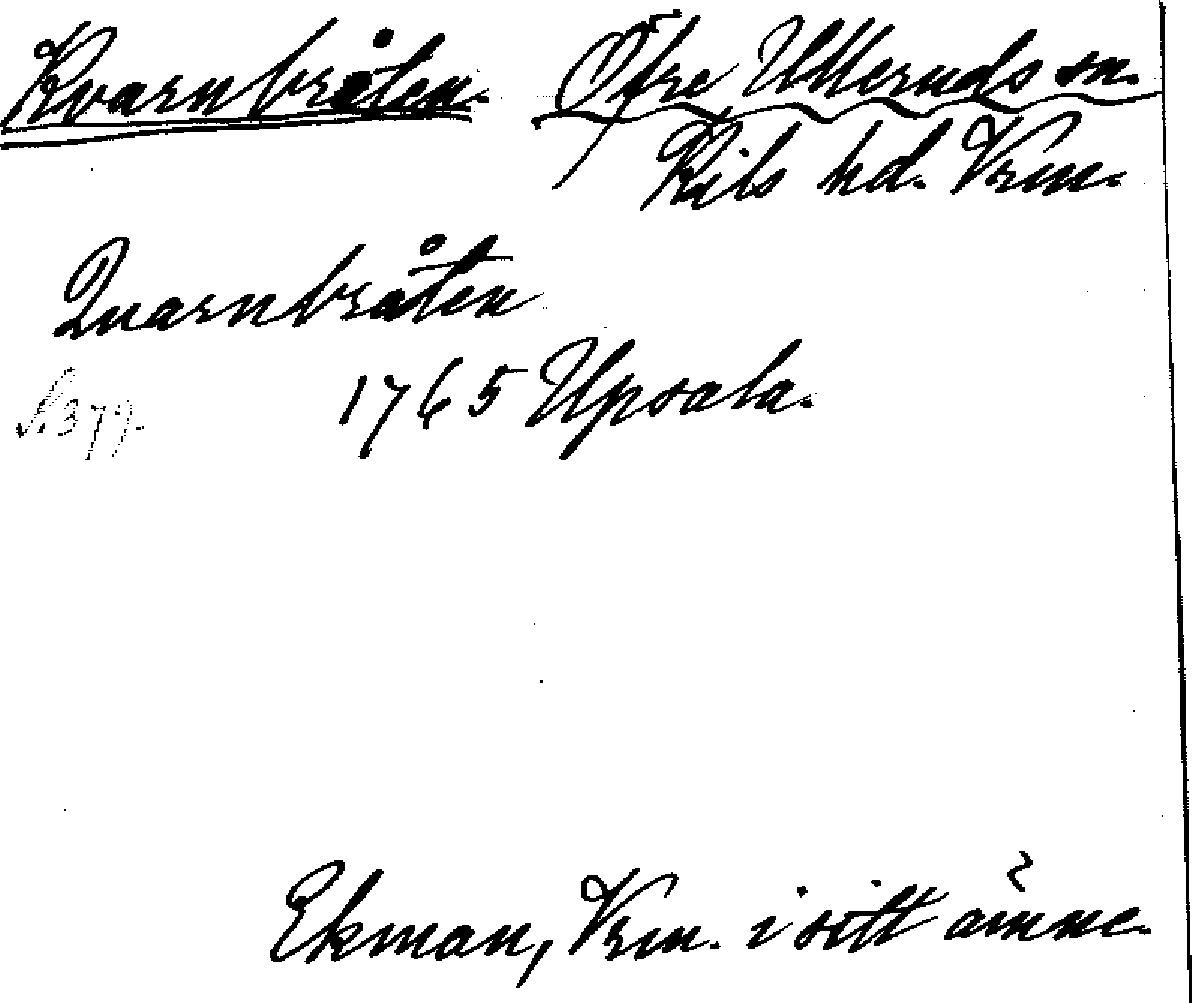 Kvarnbråten. Öfre Ulleruds sn.
Kils hd. Vrm.
Quarnbråten
1765 Upsala.
S. 379.
Ekman, Vrm. i sitt ämne.